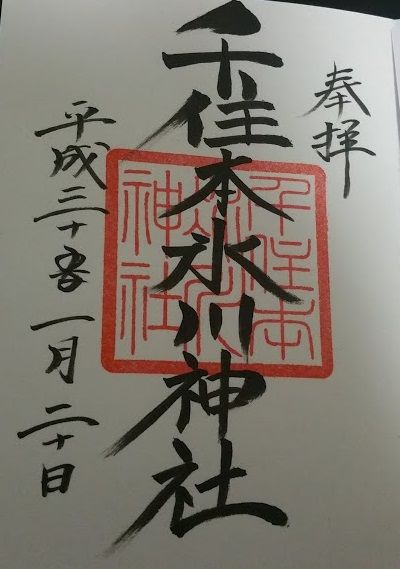 奉拝
千住本氷川神社
平成三十年一月二十日
千住本
氷川
神社